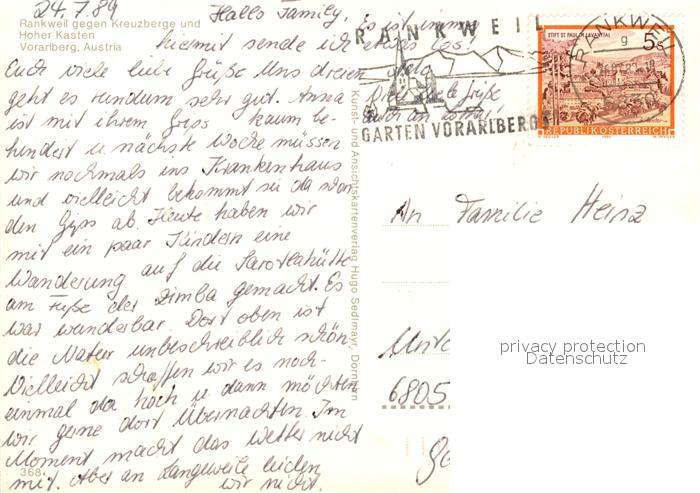 24.7.89
Rankweil gegen Kreuzberge und
Hoher Kasten
Vorarlberg, Austria
Hallo Family,
hiermit sende ich
Euch viele liebe Grüße. Uns dreien
geht es rundum sehr gut. Anna
ist mit ihrem Gips kaum be-
hindert u. nächste Woche müssen
wir nochmals ins Krankenhaus
und vielleicht bekommt sie da schon
den Gips ab. Heute haben wir
mit ein paar Kindern eine
Wanderung auf die Sarotlahütte
am Fuße der Zimba gemacht. Es
war wunderbar. Dort oben ist
die Natur unbeschreiblich schön.
Vielleicht schaffen wir es noch-
einmal da hoch u. dann möchten
wir gerne dort übernachten. Im
Moment macht das Wetter nicht
mit. Aber an Langeweile leiden
wir nicht.
368
Es ist immer
etwas los.
Viele liebe Grüße
auch an
Kunst- und Ansichtskartenverlag Hugo Sedlmayr, Dornbirn
RANKWEIL
GARTEN VORARLBERGS
RANKWEIL
STIFT ST. PAUL IM LAVANTTAL
5s
REPUBLIK ÖSTERREICH
An Familie Heinz
6805
privacy protection
Datenschutz